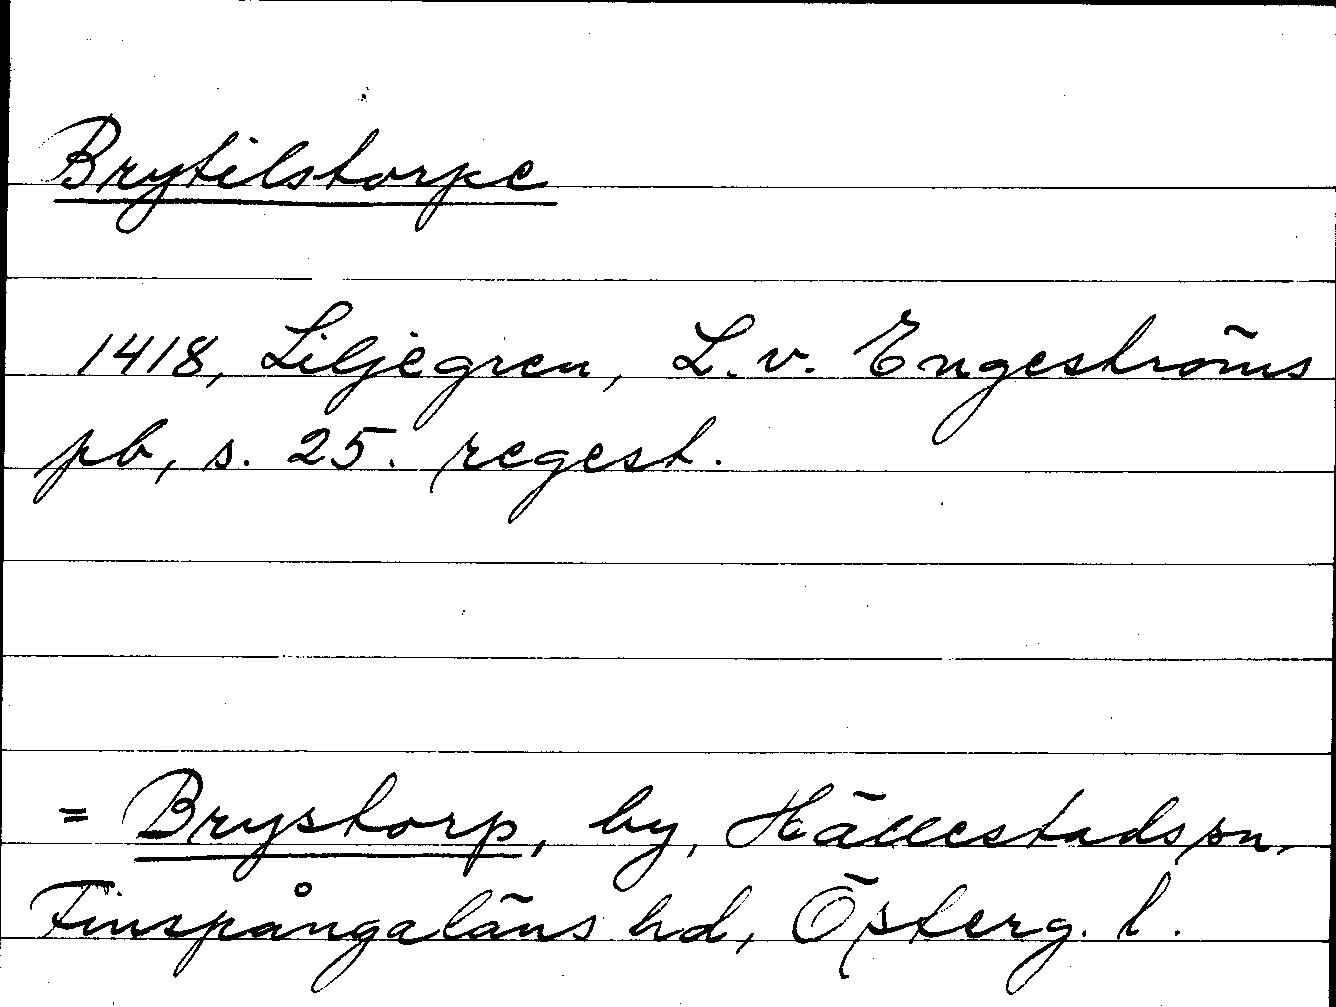 Brytilstorpe
1418, Liljegren, L. v. Engeströms
pb, s. 25. regest.
= Brystorp, by, Hällestads sn,
Finspångaläns hd, Österg. l.